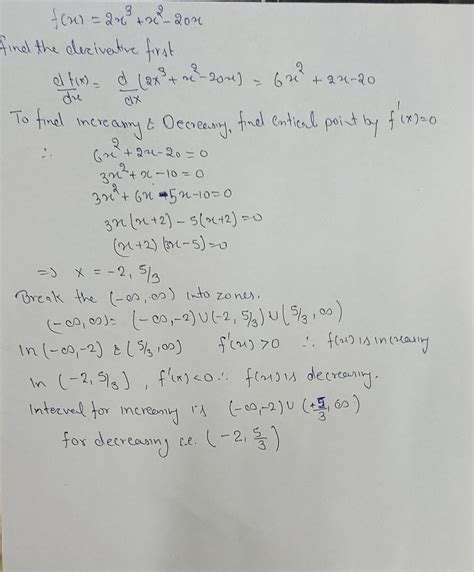 f(x) = 2x³ + x² - 20x
find the derivative first
df(x)/dx = d/dx (2x³ + x² - 20x) = 6x² + 2x - 20
To find increasing & Decreasing, find critical point by f'(x)=0
∴ 6x² + 2x - 20 = 0
3x² + x - 10 = 0
3x² + 6x - 5x - 10 = 0
3x(x+2) - 5(x+2) = 0
(x+2)(3x-5) = 0
=> x = -2, 5/3
Break the (-∞, ∞) into zones.
(-∞, ∞) = (-∞, -2) ∪ (-2, 5/3) ∪ (5/3, ∞)
In (-∞, -2) & (5/3, ∞) f'(x) > 0 ∴ f(x) is increasing
In (-2, 5/3], f'(x) < 0 ∴ f(x) is decreasing.
Interval for increasing is (-∞, -2) ∪ (+5/3, ∞)
for decreasing i.e. (-2, 5/3)